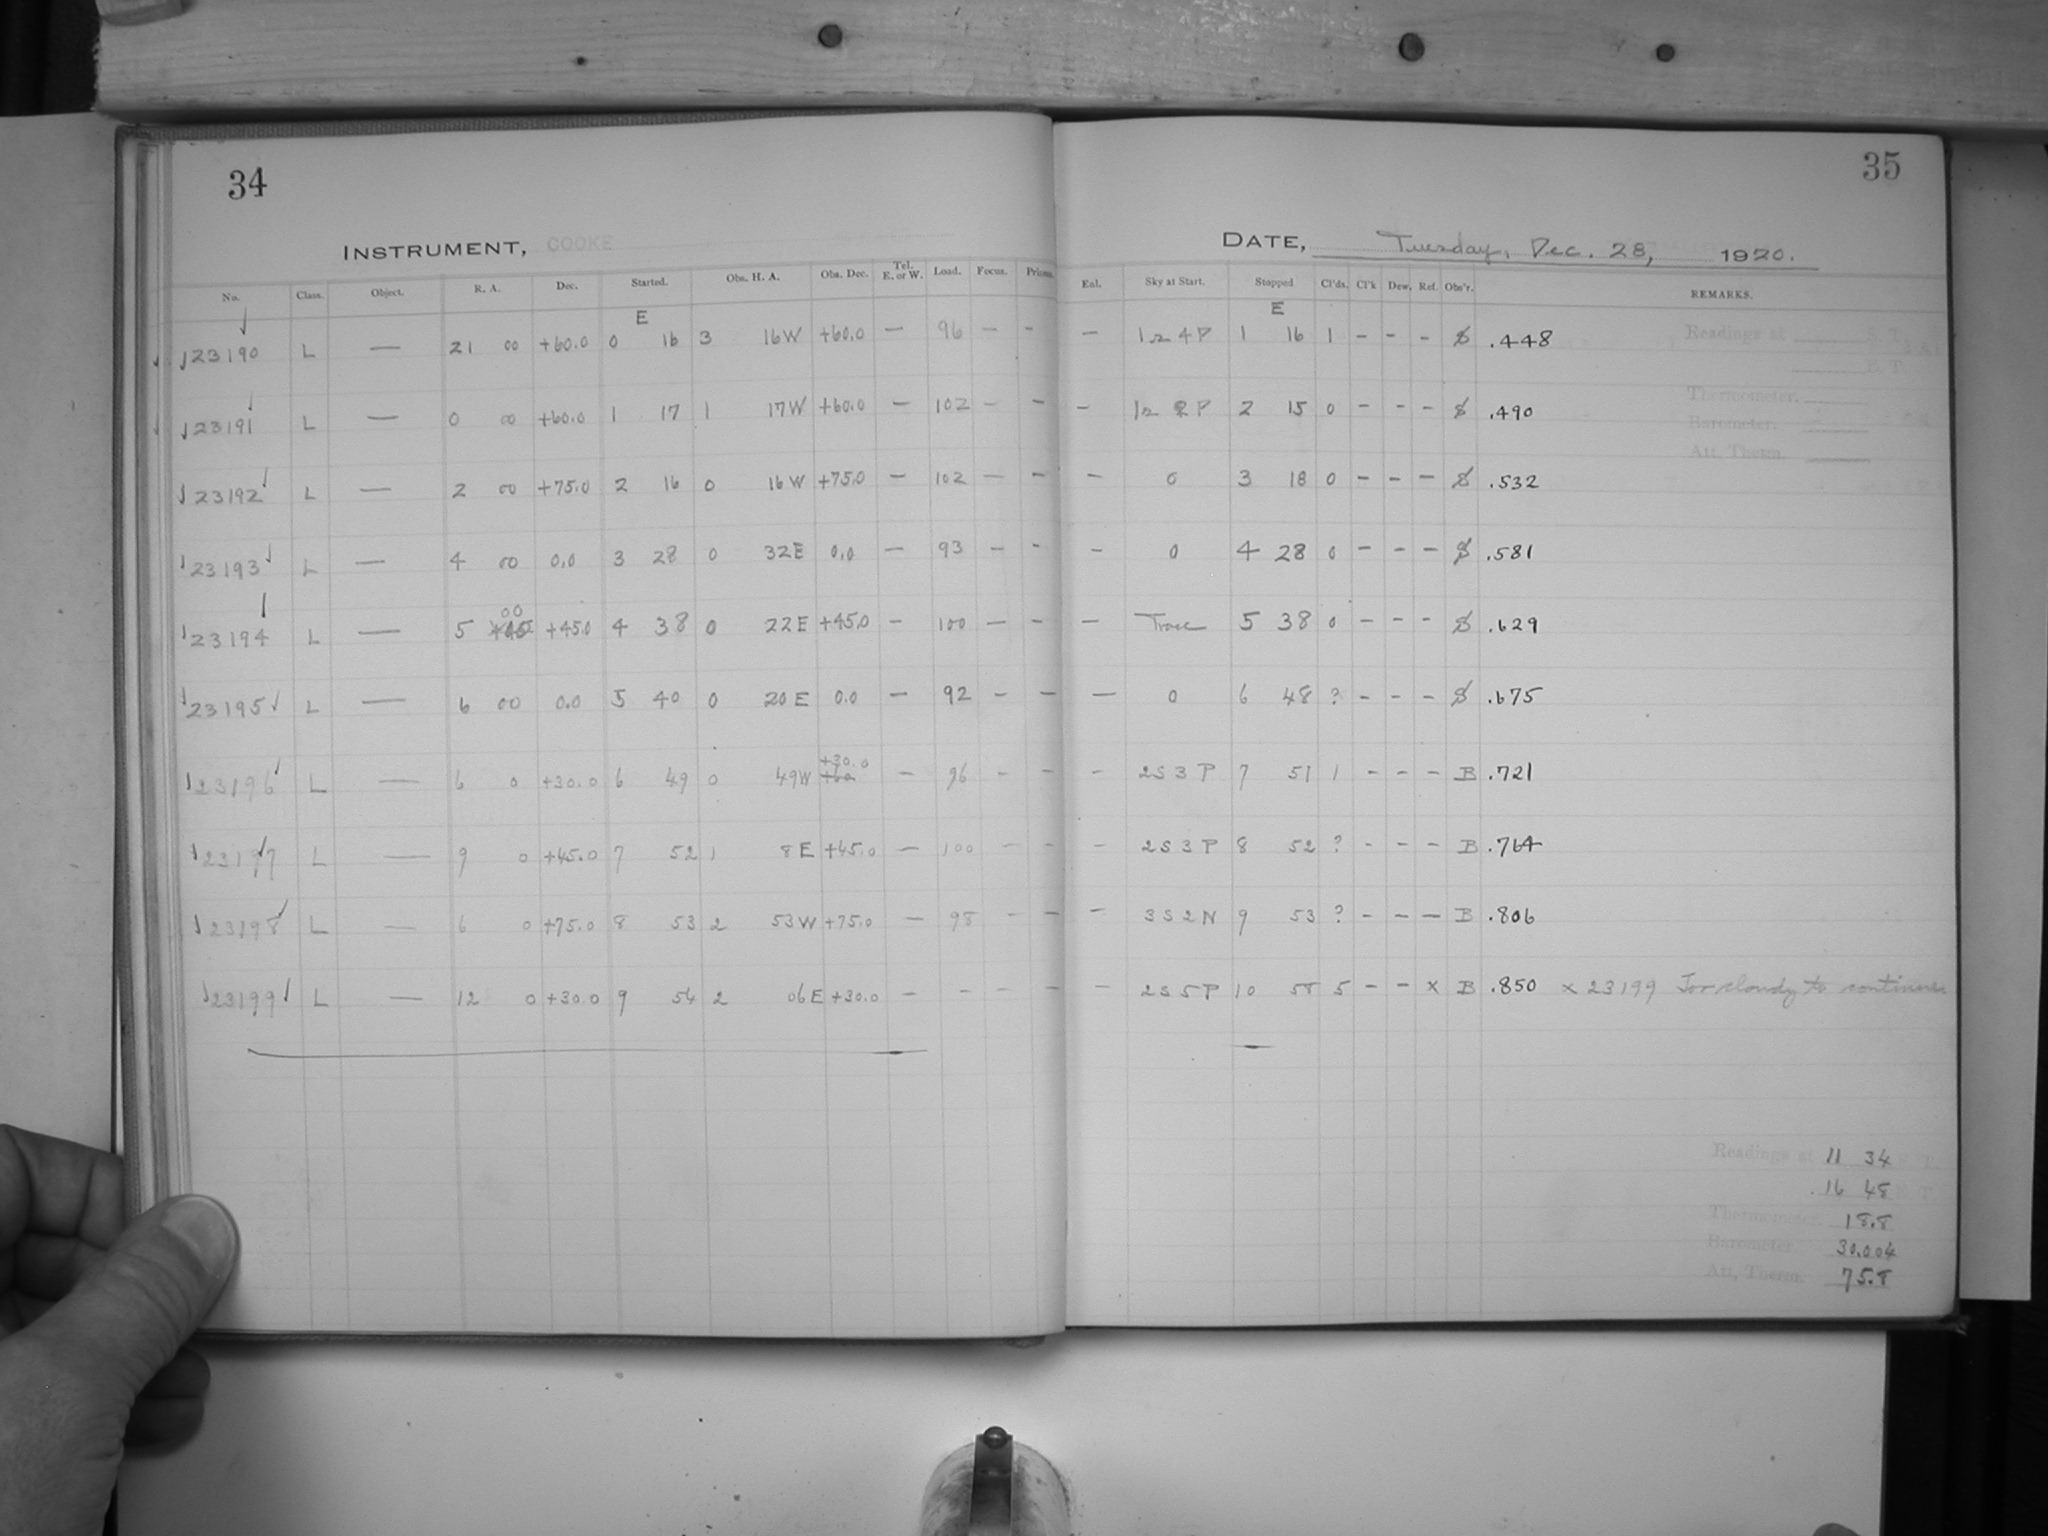 34
INSTRUMENT, COOKE
No. Class. Object. R. A. Dec. Started. Obs. H. A. Obs. Dec. Tel. E. or W. Load. Focus. Prisms.
E
23190 L — 21 00 +60.0 0 16 3 16W +60.0 — 96 — -
23191 L — 0 00 +60.0 1 17 1 17W +60.0 — 102 — —
23192 L — 2 00 +75.0 2 16 0 16W +75.0 — 102 — —
23193 L — 4 00 0.0 3 28 0 32E 0.0 — 93 — -
00
23194 L — 5 +45.0 4 38 0 22E +45.0 - 100 — —
23195 L — 6 00 0.0 5 40 0 20E 0.0 — 92 — —
+30.0
23196 L — 6 0 +30.0 6 49 0 49W +60 — 96 - -
23197 L — 9 0 +45.0 7 52 1 8E +45.0 — 100 — -
23198 L — 6 0 +75.0 8 53 2 53W +75.0 — 98 - —
23199 L — 12 0 +30.0 9 54 2 06E +30.0 — - - -
35
DATE, Tuesday, Dec. 28, 1920.
Enl. Sky at Start. Stopped Cl'ds. Cl'k Dew. Ref. Obs'r. REMARKS.
E
— 1 16 1 - - - .448
— 2 15 0 - - - .490
— 0 3 18 0 - - - .532
- 0 4 28 0 - - - .581
— Trace 5 38 0 - - - .629
— 0 6 48 ? - - - .675
- 2S3P 7 51 1 - - - B .721
- 2S3P 8 52 ? - - - B .764
— 3S2N 9 53 ? - - — B .806
— 2S5P 10 55 5 - - x B .850 x 23199 Too cloudy to continue
Readings at S. T.
E. T.
Thermometer.
Barometer.
Att. Therm.
Readings at 11 34 S. T.
16 48 E. T.
Thermometer. 18.8
Barometer. 30.004
Att. Therm. 75.8